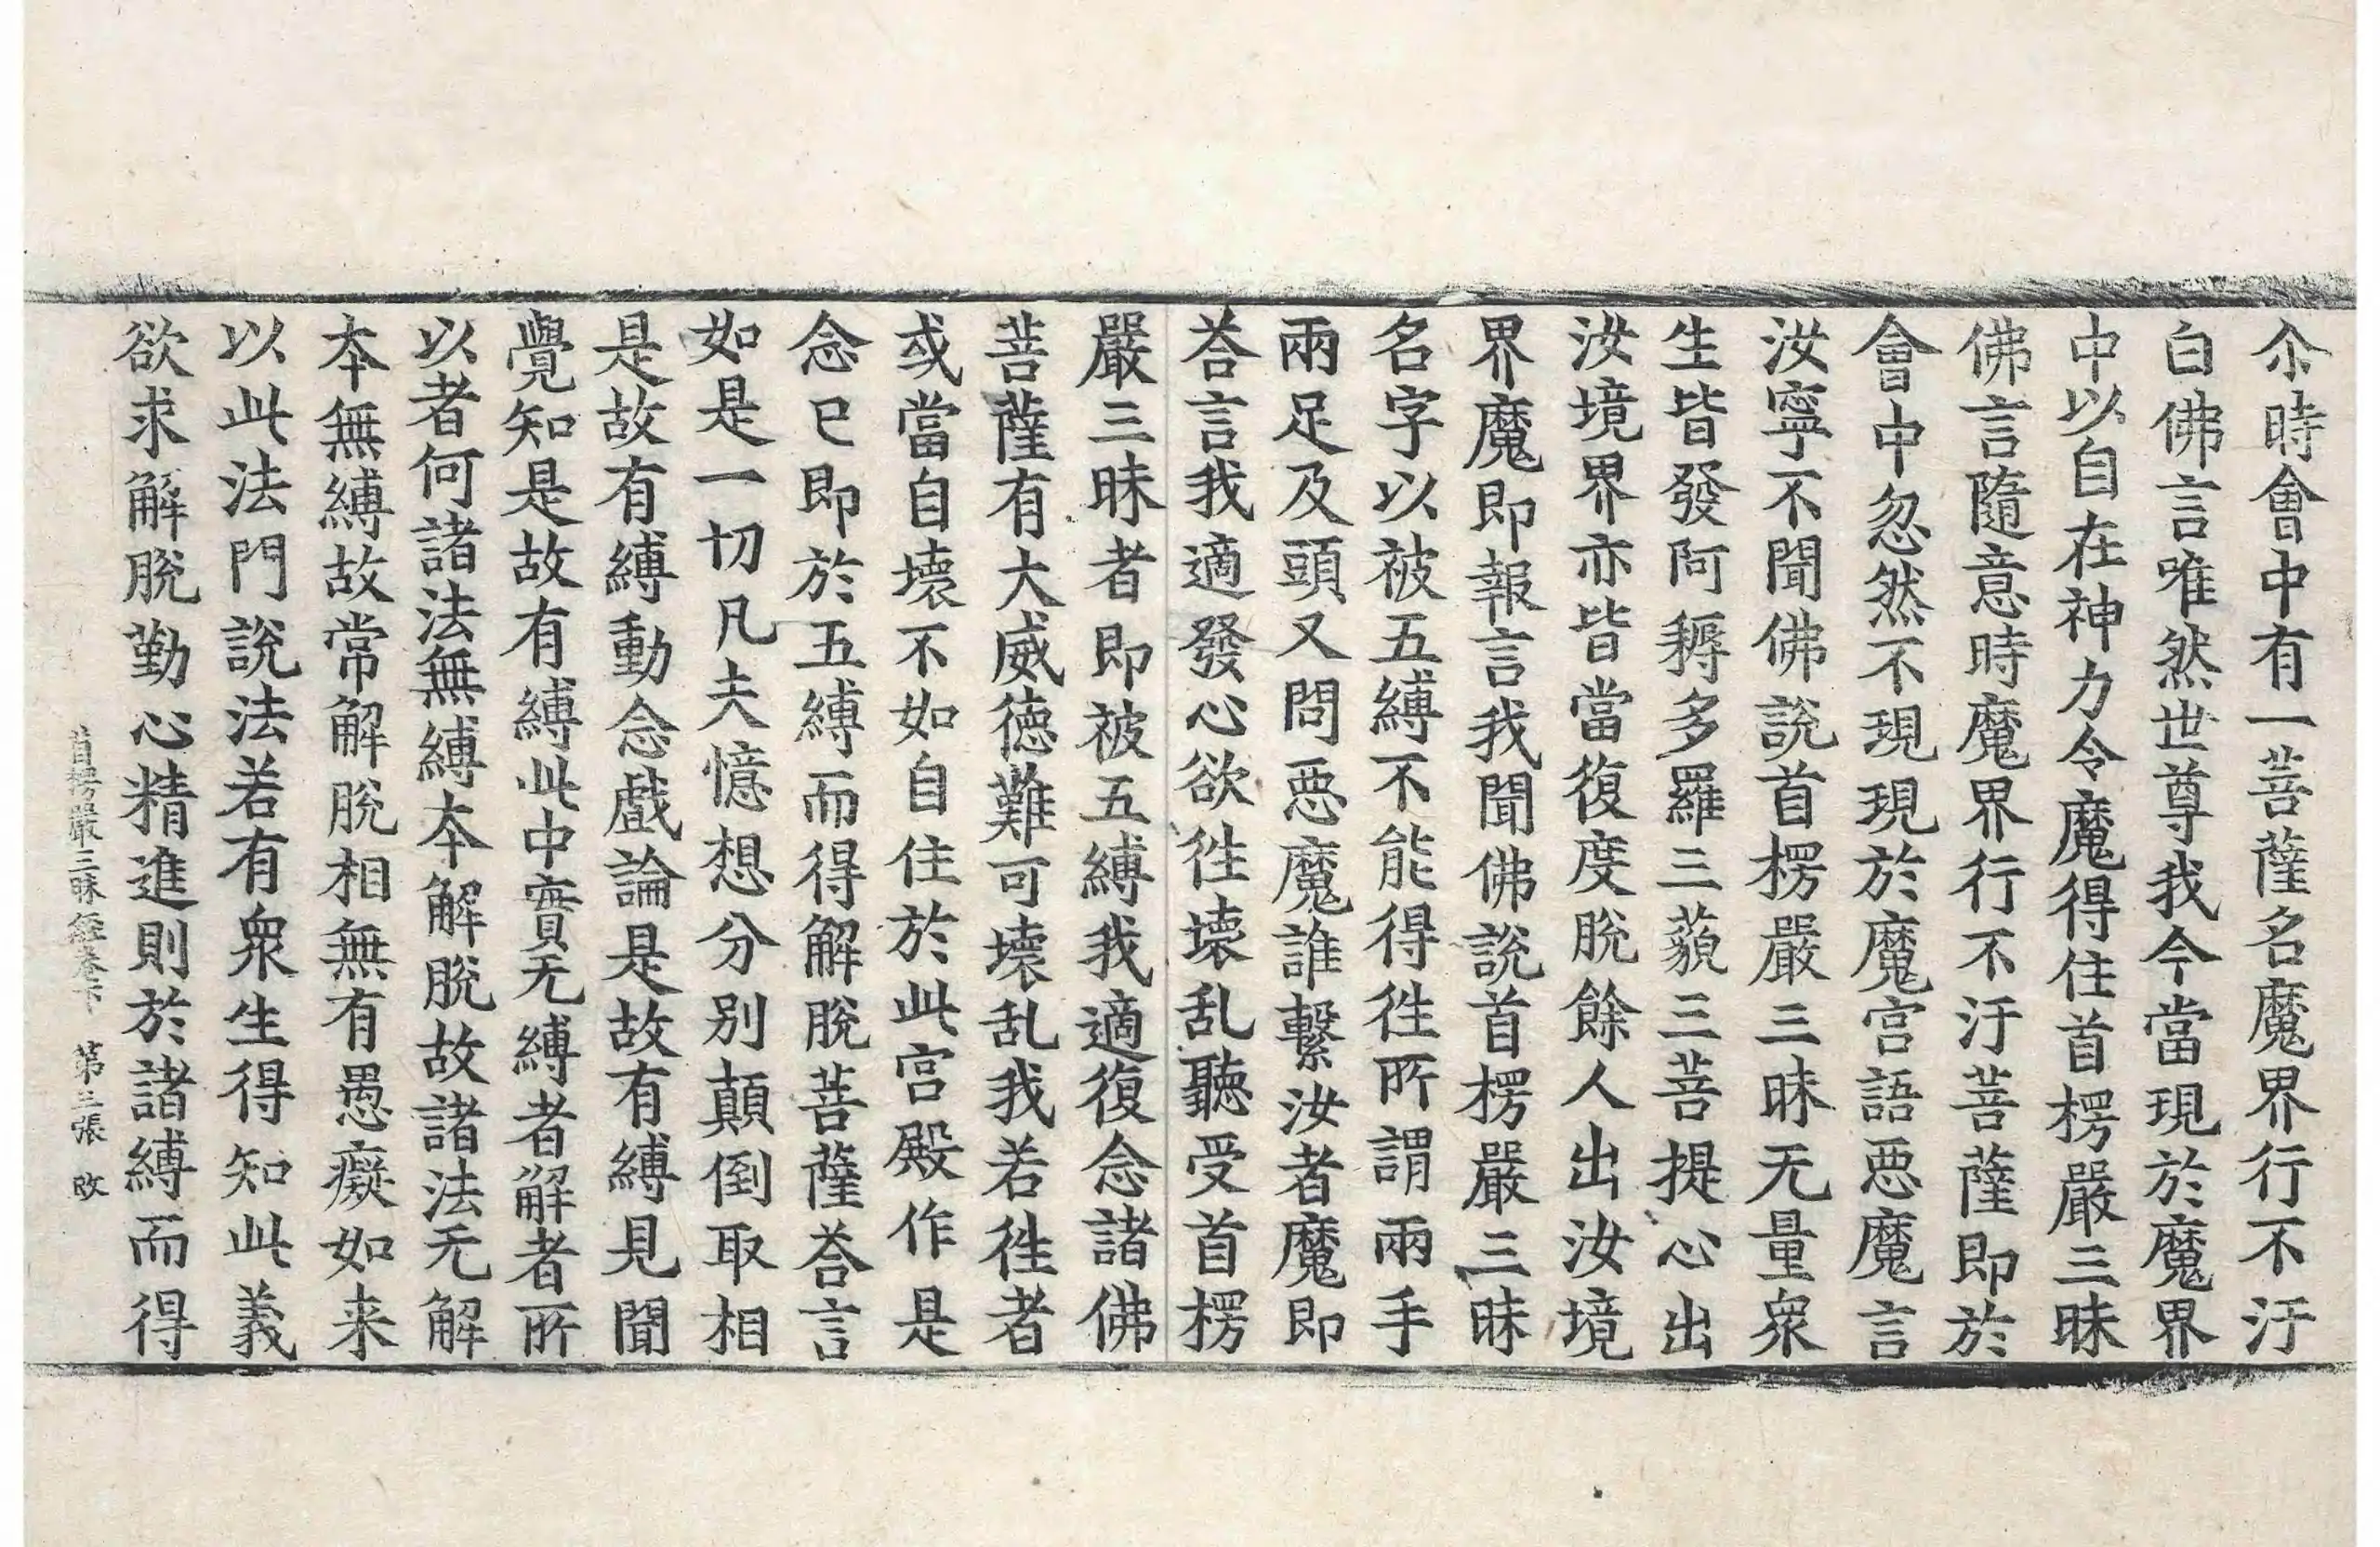 尒時會中有一菩薩名魔界行不汙
白佛言唯然世尊我今當現於魔界
中以自在神力令魔得住首楞嚴三昧
佛言隨意時魔界行不汙菩薩即於
會中忽然不現現於魔宮語惡魔言
汝寧不聞佛說首楞嚴三昧无量衆
生皆發阿耨多羅三藐三菩提心出
汝境界亦皆當復度脫餘人出汝境
界魔即報言我聞佛說首楞嚴三昧
名字以被五縛不能得徃所謂兩手
兩足及頭又問惡魔誰繫汝者魔即
荅言我適發心欲徃壞乱聽受首楞
嚴三昧者即被五縛我適復念諸佛
菩薩有大威德難可壞乱我若徃者
或當自壞不如自住於此宮殿作是
念已即於五縛而得解脫菩薩荅言
如是一切凡夫憶想分別顛倒取相
是故有縛動念戲論是故有縛見聞
覺知是故有縛此中實无縛者解者所
以者何諸法無縛本解脫故諸法无解
本無縛故常解脫相無有愚癡如来
以此法門說法若有衆生得知此義
欲求解脫勤心精進則於諸縛而得
首楞嚴三昧經卷下 第三張 改